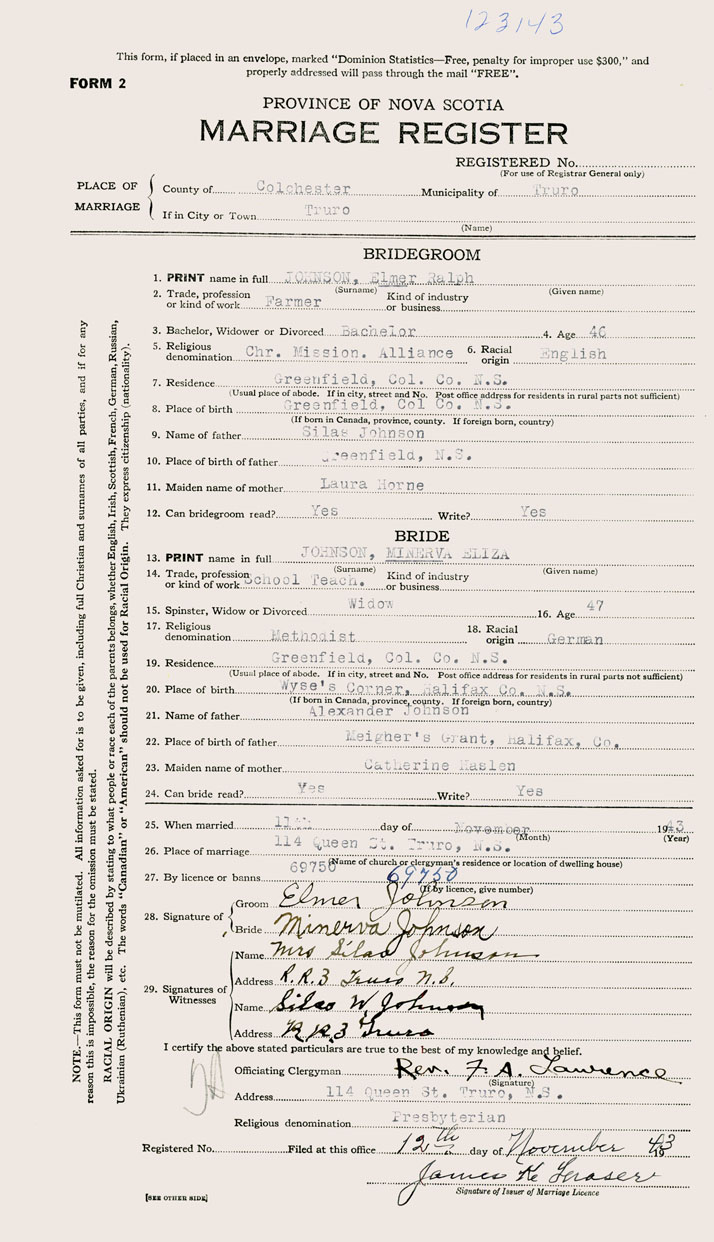 123143
This form, if placed in an envelope, marked "Dominion Statistics—Free, penalty for improper use $300," and
properly addressed will pass through the mail "FREE".
FORM 2
PROVINCE OF NOVA SCOTIA
MARRIAGE REGISTER
REGISTERED No.
(For use of Registrar General only)
PLACE OF MARRIAGE
County of Colchester Municipality of Truro
If in City or Town Truro
(Name)
BRIDEGROOM
1. PRINT name in full JOHNSON, Elmer Ralph
(Surname) (Given name)
2. Trade, profession or kind of work Farmer Kind of industry or business
3. Bachelor, Widower or Divorced Bachelor 4. Age 46
5. Religious denomination Chr. Mission. Alliance 6. Racial origin English
7. Residence Greenfield, Col. Co. N.S.
(Usual place of abode. If in city, street and No. Post office address for residents in rural parts not sufficient)
8. Place of birth Greenfield, Col Co. N.S.
(If born in Canada, province, county. If foreign born, country)
9. Name of father Silas Johnson
10. Place of birth of father Greenfield, N.S.
11. Maiden name of mother Laura Horne
12. Can bridegroom read? Yes Write? Yes
BRIDE
13. PRINT name in full JOHNSON, MINERVA ELIZA
(Surname) (Given name)
14. Trade, profession or kind of work School Teach. Kind of industry or business
15. Spinster, Widow or Divorced Widow 16. Age 47
17. Religious denomination Methodist 18. Racial origin German
19. Residence Greenfield, Col. Co. N.S.
(Usual place of abode. If in city, street and No. Post office address for residents in rural parts not sufficient)
20. Place of birth Wyse's Corner, Halifax Co. N.S.
(If born in Canada, province, county. If foreign born, country)
21. Name of father Alexander Johnson
22. Place of birth of father Meigher's Grant, Halifax, Co.
23. Maiden name of mother Catherine Haslen
24. Can bride read? Yes Write? Yes
25. When married 11th day of November 1943
(Month) (Year)
26. Place of marriage 114 Queen St. Truro, N.S.
(Name of church or clergyman's residence or location of dwelling house)
27. By licence or banns 69750 69750
(If by licence, give number)
28. Signature of
Groom Elmer Johnson
Bride Minerva Johnson
29. Signatures of Witnesses
Name Mrs Silas Johnson
Address R.R.3 Truro N.S.
Name Silas W. Johnson
Address R.R.3 Truro
I certify the above stated particulars are true to the best of my knowledge and belief.
Officiating Clergyman Rev. F. A. Lawrence
(Signature)
Address 114 Queen St. Truro, N.S.
Religious denomination Presbyterian
Registered No. Filed at this office 12th day of November 1943
James K. Fraser
Signature of Issuer of Marriage Licence
[SEE OTHER SIDE]
NOTE.—This form must not be mutilated. All information asked for is to be given, including full Christian and surnames of all parties, and if for any
reason this is impossible, the reason for the omission must be stated.
RACIAL ORIGIN will be described by stating to what people or race each of the parents belongs, whether English, Irish, Scottish, French, German, Russian,
Ukrainian (Ruthenian), etc. The words "Canadian" or "American" should not be used for Racial Origin. They express citizenship (nationality).